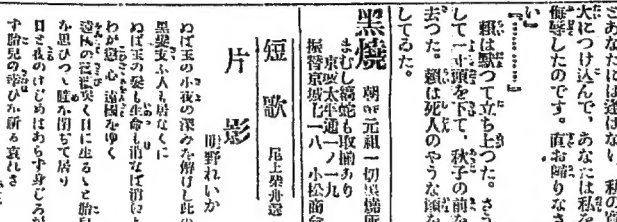 さあなたには逢はない、私の
大につけ込んで、あなたは私を
侮辱したのです。直お歸りなさ
い』
『…………』
賴は默つて立ち上つた。さう
して一寸頭を下て、秋子の前を
去つた。賴は死人のやうな顔を
してゐた。
黑燒
朝鮮元祖一切黑燒所
まむし縞蛇も取揃あり
京城太平通一ノ一九
振替京城七一八 小松商會
短歌
尾上柴舟選
片影
明野れいか
ぬば玉の小夜の深みを解けし此の
黑髮支ふ人も居なくに
ぬば玉の髮も生命も消なば消ね
わが戀心遠樹をゆく
咲く日に生るゝと胎兒
を思ひつゝ瞳か閉ぢて居り
日と夜のけじめはあらず身じろが
す胎兒の幸ひか祈る哀れさ